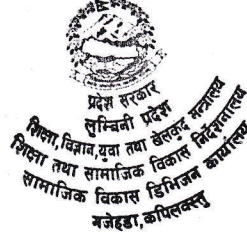 प्रदेश सरकार
लुम्बिनी प्रदेश
शिक्षा, विज्ञान, युवा तथा खेलकुद मन्त्रालय
शिक्षा तथा सामाजिक विकास निर्देशनालय
सामाजिक विकास डिभिजन कार्यालय
गजेहडा, कपिलवस्तु